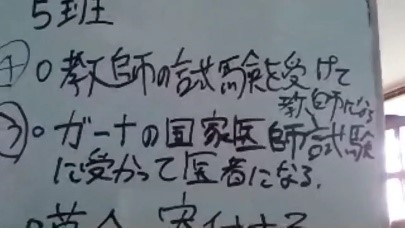 5班
④○教師の試験を受けて
教師になる
○ガーナの国家医師試験
に受かって医者になる。